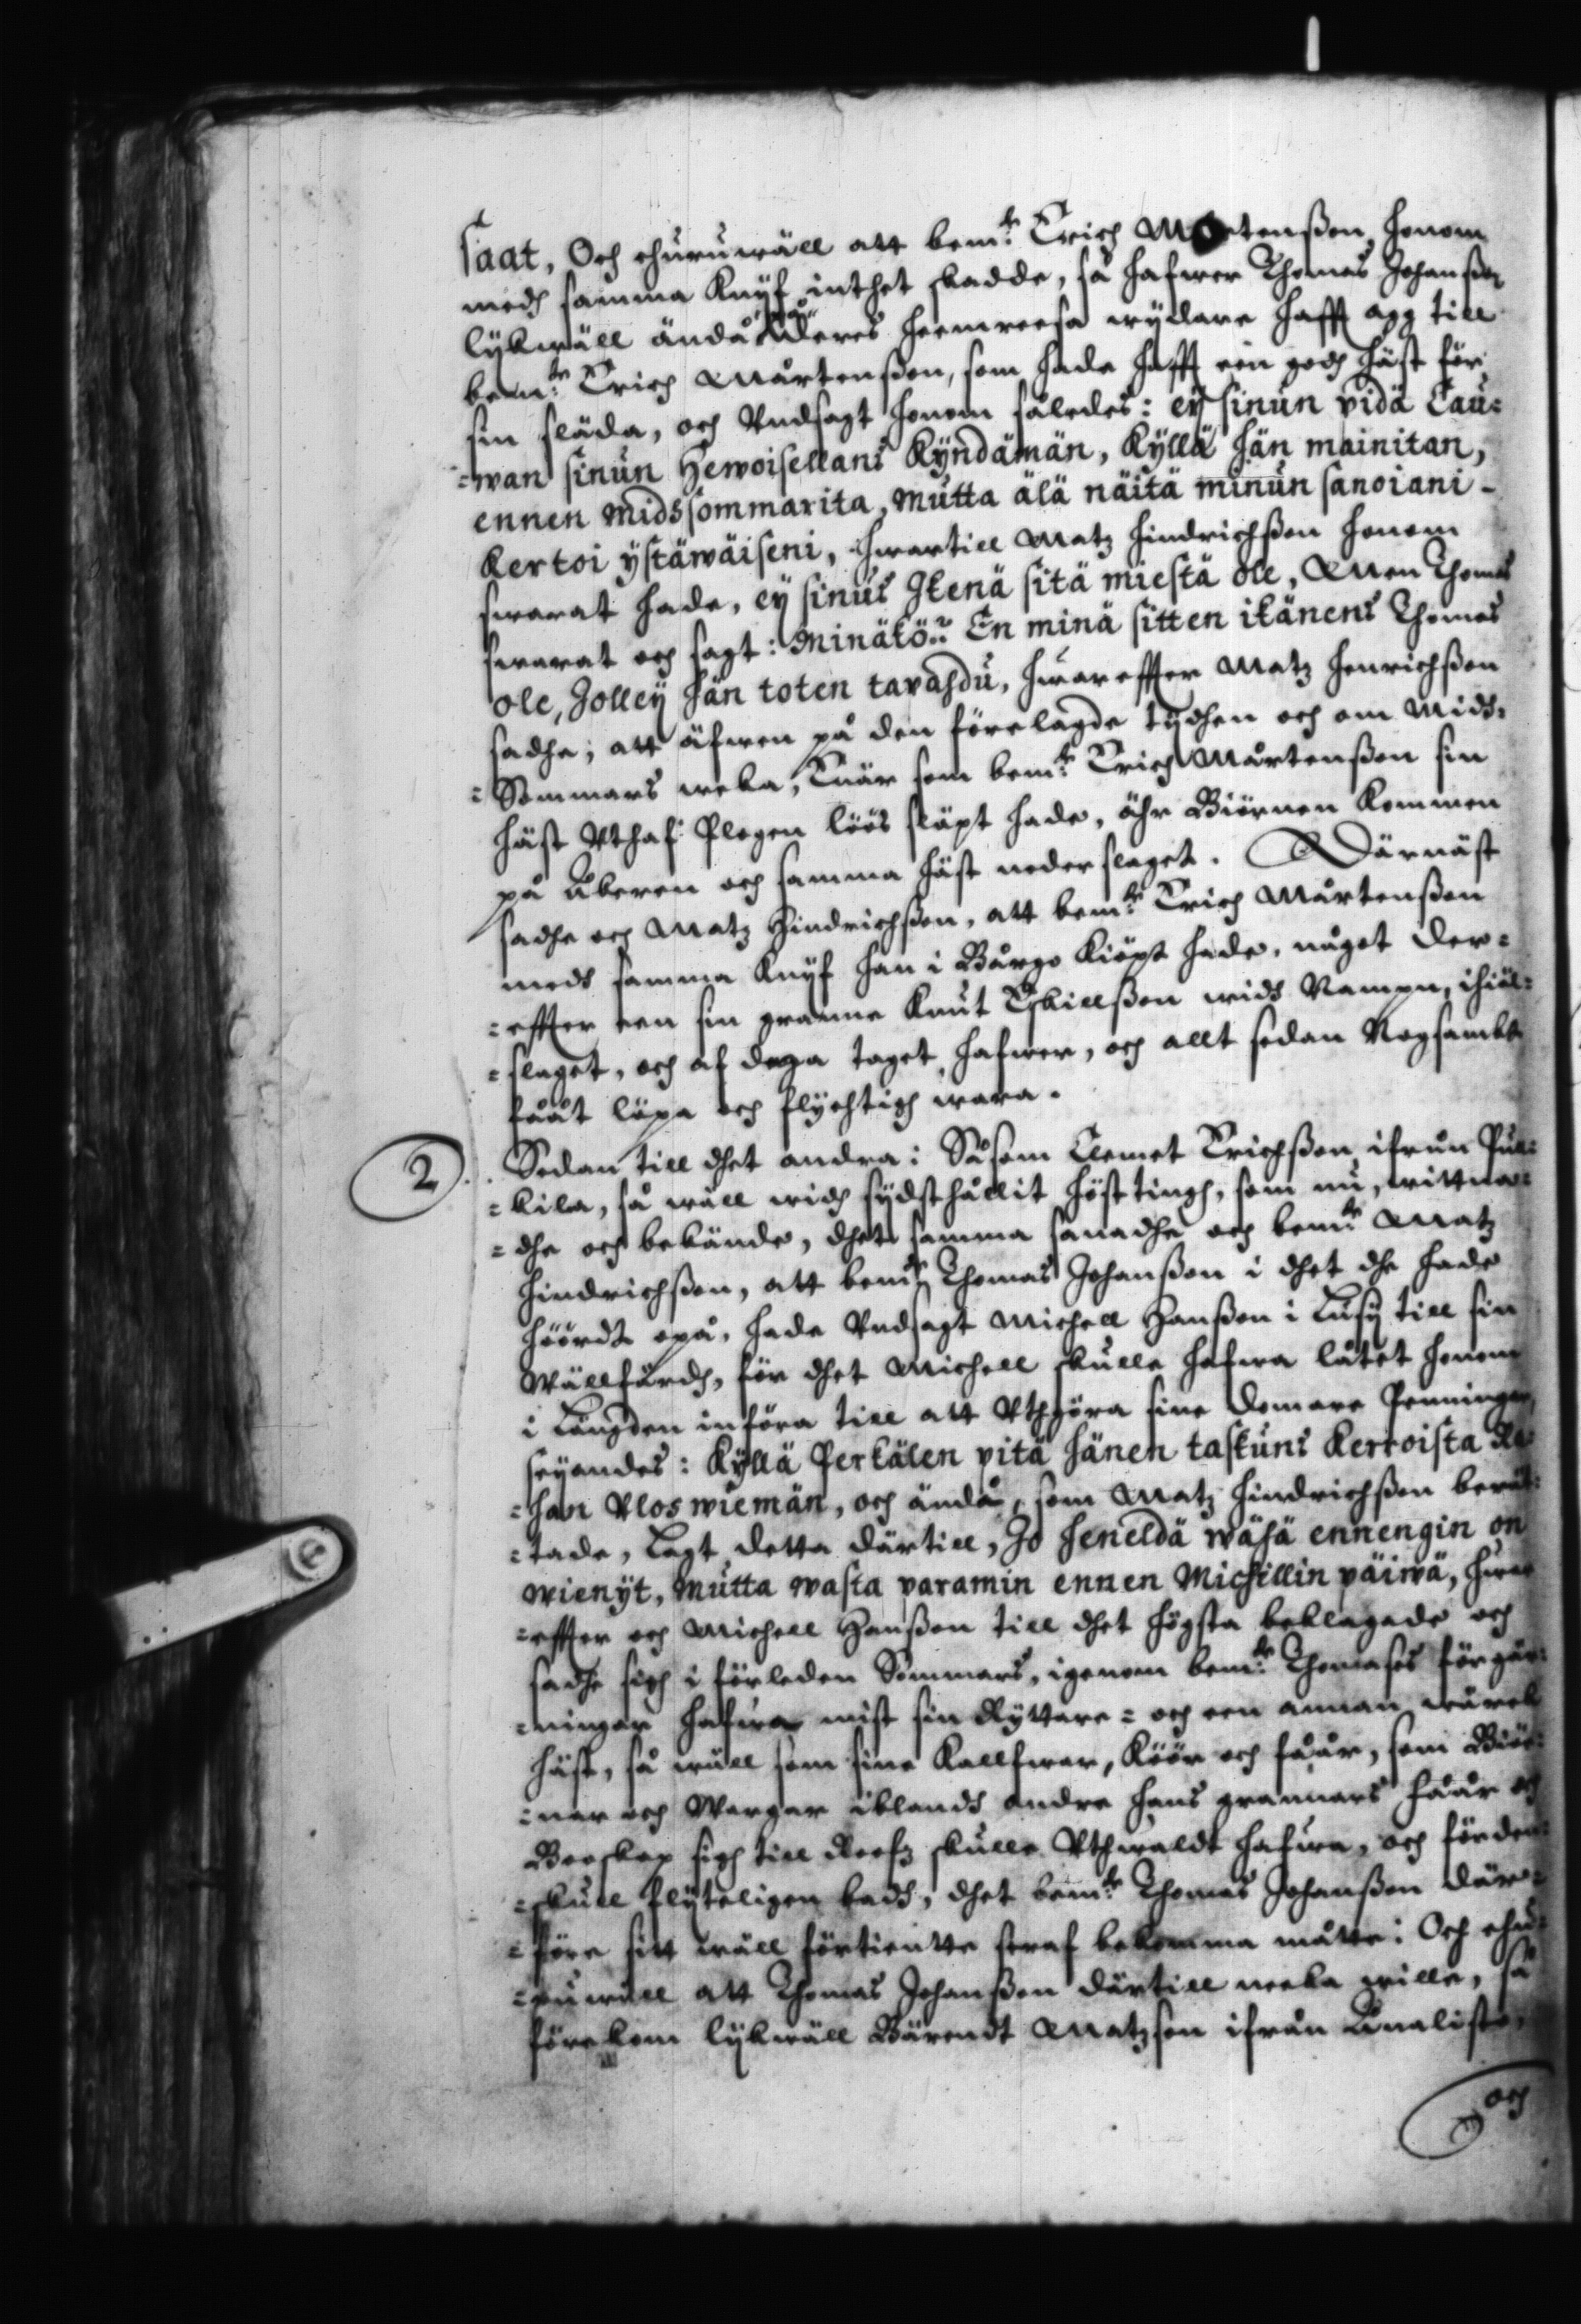 saat, Och ehuruwäll att bem:te Erich Mårtenßon honom
medh samma Knijf inthet skadde, så hafwer Thomas Johanßon
lijkwäll ändå på deres heemreesa wijdare hafft agg till
bem:te Erich Mårtenßon, som hade hafft een godh häst för
sin släda, och Undsagt honom således: eÿ sinun pidä Cau=
=wan sinun Hewoisellans Kÿndämän, Kÿllä hän mainitan,
ennen midssommarita, mutta älä näitä minun sanoiani
Kertoi ÿstäwäiseni, hwartill Matz Hindrichßon honom
swarat hade, eÿ sinus Ikenä sitä miestä ole, Men Thomas
swarat och sagt: Minäkö? En minä sitten ikänens Thomas
ole, Jolleÿ hän toten tapahdu, hwareffter Matz Henrichßon
sadhe; att äfwen på den förelagde tijdhen och om Midh=
=Sommars weka, Enär som bem:te Erich Mårtenßon sin
häst Uthaf Plogen löös släpt hade, ähr Biörnen Kommen
på Åkeren och samma häst nederslaget. Därnäst
sadhe och Matz Hindrichßon, att bem:te Erich Mårtenßon
medh samma Knijf han i Borgo Kiöpt hade, något der=
=effter een sin granne Knut Eskillßon widh Nampn, ihiäl=
=slaget, och af daga taget hafwer, och allt sedan Nogsambt
fåat löpa och flychtigh wara.
2. Sedan till dhet andra: Såsom Clemet Erichßon ifrån Pul=
=kila, så wäll widh sijdsthållit hösttingh, som nu, wittna=
=dhe och bekände, dhet samma sanadhe och bem:te Matz
Hindrichßon, att bem:te Thomas Johanßon i dhet dhe hade
höördt opå, hade Undsagt Michell Hanßon i Lusÿ till sin
Wällfärdh, för dhet Michell skulle hafwa låtet honom
i Längden införa till att Uthgöra sine Domare Penningar,
seijandes: Kÿllä Perkälen pitä hänen taskuns Kerroista Ra=
=han Ulos wiemän, och ändå, som Matz Hindrichßon berät=
=tade, Lagt detta därtill, Jo heneldä wähä ennengin on
wienÿt, mutta wasta paramin ennen Michillin päiwä, hwar
=effter och Michell Hanßon till dhet högsta beklagade och
sadhe sigh i förleden Sommars, igenom bem:te Thomases förgär=
=ningar hafwa mist sin Rÿttare= och een annan wårek
häst, så wäll som sine Kallfwar, Köör och fåår, som Biör=
=nar och Wargar iblandh andre hans grannars fåår och
Booskap sigh till Roof skulle Uthwaldt hafwa, och förden=
=skull flijteligen badh, dhet bem:te Thomas Johanßon där=
=före sitt wäll förtientte straf bekomma måtte: Och ehu=
=ruwäll att Thomas Johanßon därtill neeka wille, så
förekom lijkwäll Bärendt Matzson ifrån
och